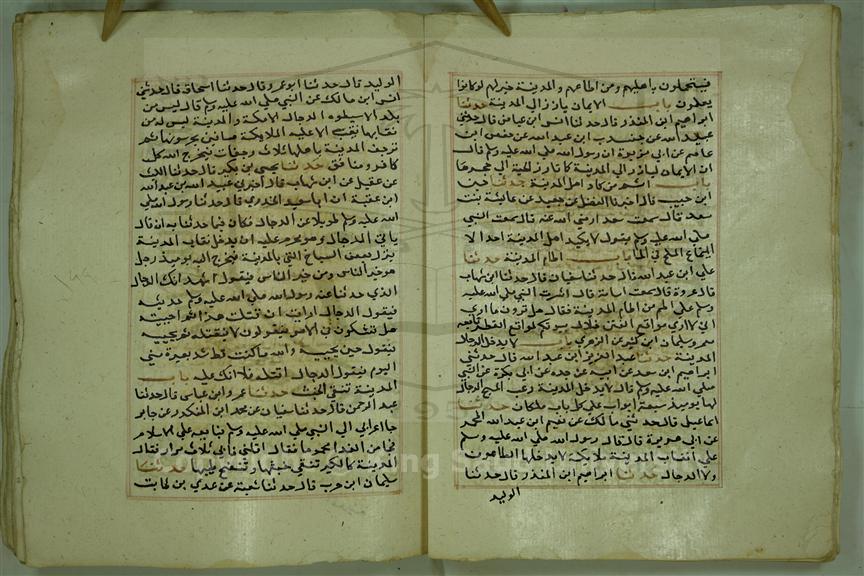 فيتحملون باهليهم ومن اطاعهم والمدينة خير لهم لو كانوا
يعلمون باب الايمان يارز الي المدينة حدثنا
ابراهيم ابن المنذر قال حدثنا انس ابن عياض قال حدثني
عبيد الله عن خبيب ابن عبد الله عن حفص ابن
عاصم عن ابي هريرة ان رسول الله صلي الله عليه وسلم قال
ان الايمان ليارز الي المدينة كما تارز الحية الي جحرها
باب اثم من كاد اهل المدينة حدثنا حسين
ابن حريث قال اخبرنا الفضل عن جعيد عن عائشة بنت
سعد قالت سمعت سعدا رضي الله عنه قال سمعت النبي
صلي الله عليه وسلم يقول لا يكيد اهل المدينة احد الا
انماع كما ينماع الملح في الماء باب اطام المدينة حدثنا
علي ابن عبد الله قال حدثنا سفيان قال حدثنا ابن شهاب
قال عروة قال سمعت اسامة قال اشرف النبي صلي الله عليه
وسلم علي اطم من اطام المدينة فقال هل ترون ما اري
اني لاري مواقع الفتن خلال بيوتكم كمواقع القطر تابعه
معمر وسليمان ابن كثير عن الزهري باب لا يدخل الدجال
المدينة حدثنا عبد العزيز ابن عبد الله قال حدثني
ابراهيم ابن سعد عن ابيه عن جده عن ابي بكرة عن النبي
صلي الله عليه وسلم قال لا يدخل المدينة رعب المسيح الدجال
لها يومئذ سبعة ابواب علي كل باب ملكان حدثنا
اسماعيل قال حدثني مالك عن نعيم ابن عبد الله المجمر
عن ابي هريرة قال قال رسول الله صلي الله عليه وسلم
علي انقاب المدينة ملايكة لا يدخلها الطاعون
ولا الدجال حدثنا ابراهيم ابن المنذر قال حدثنا
الوليد
الوليد قال حدثنا ابو عمرو قال حدثنا اسحاق قال حدثني
انس ابن مالك عن النبي صلي الله عليه وسلم قال ليس من
بلد الا سيطوه الدجال الا مكة والمدينة ليس له من
نقابها نقب الا عليه الملايكة صافين يحرسونها ثم
ترجف المدينة باهلها ثلاث رجفات فيخرج الله كل
كافر ومنافق حدثنا يحيي ابن بكير قال حدثنا الليث
عن عقيل عن ابن شهاب قال اخبرني عبيد الله بن عبد الله
ابن عقبة ان ابا سعيد الخدري قال حدثنا رسول الله صلي
الله عليه وسلم طويلا عن الدجال فكان فيما حدثنا به ان قال
ياتي الدجال وهو محرم عليه ان يدخل نقاب المدينة
ينزل بعض السباخ التي بالمدينة فيخرج اليه يوميذ رجل
هو خير الناس ومن خير الناس فيقول اشهد انك الدجال
الذي حدثنا عنه رسول الله صلي الله عليه وسلم حديثه
فيقول الدجال ارايت ان قتلت هذا ثم احييته
هل تشكون في الامر فيقولون لا فيقتله ثم يحييه
فيقول حين يحييه والله ما كنت قط اشد بصيرة مني
اليوم فيقول الدجال اقتله فلا انك عليه باب
المدينة تنفي الخبث حدثنا عمرو ابن عباس قال حدثنا
عبد الرحمن قال حدثنا سفيان عن محمد ابن المنكدر عن جابر
جا اعرابي الي النبي صلي الله عليه وسلم فبايعه علي الاسلام
فجا من الغد محموما فقال اقلني فابي ثلاث مرار فقال
المدينة كالكير تنفي خبثها وتنصع طيبها حدثنا
سليمان ابن حرب قال حدثنا شعبة عن عدي بن ثابت